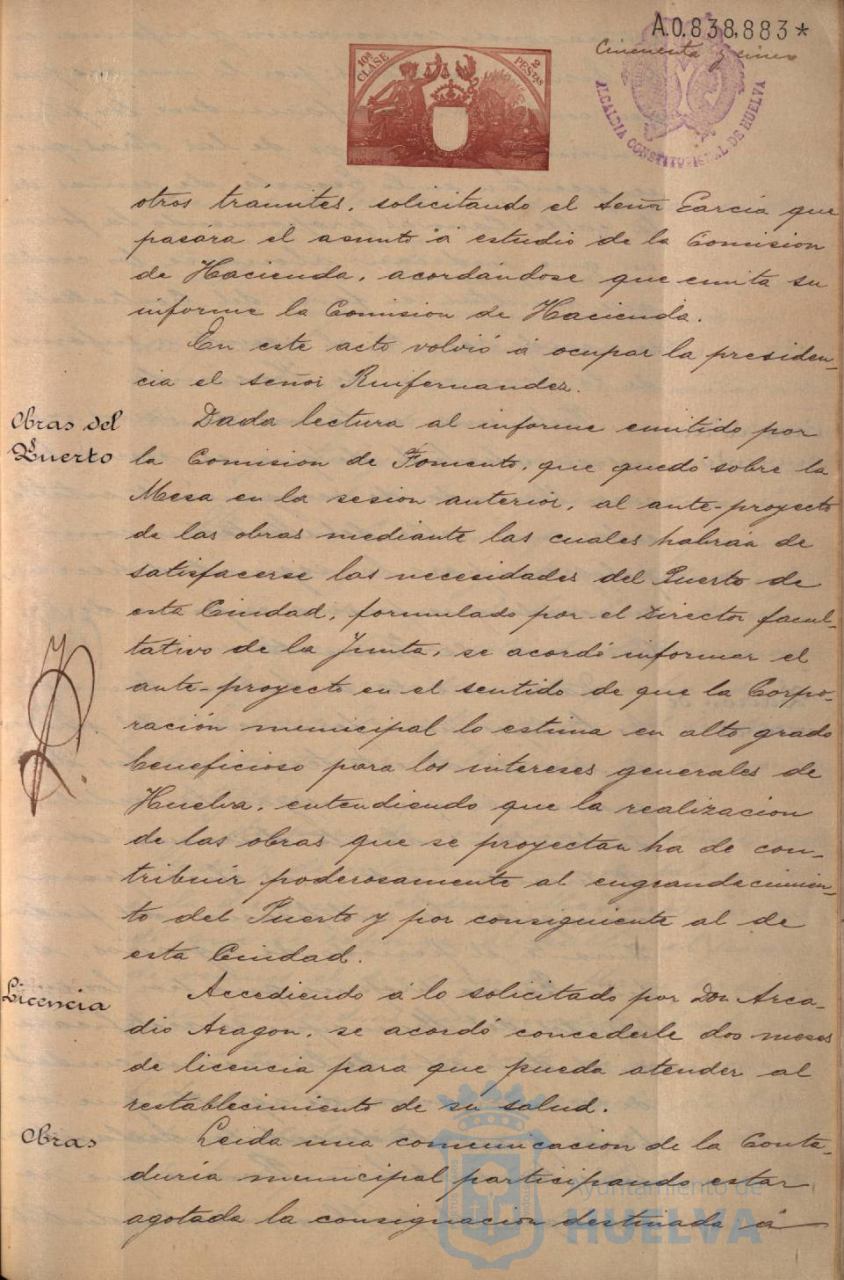 A.0.838,883*
Cincuenta y cinco
10ª CLASE
2 PESETAS
ALCALDIA CONSTITUCIONAL DE HUELVA
otros trámites, solicitando el Señor Garcia que
pasára el asunto á estudio de la Comision
de Hacienda, acordándose que emita su
informe la Comision de Hacienda.
En este acto volvió á ocupar la presiden-
cia el señor Ruifernandez.
Obras del
Puerto
Dada lectura al informe emitido por
la Comision de Fomento, que quedó sobre la
Mesa en la sesion anterior, al ante-proyecto
de las obras mediante las cuales habrán de
satisfacerse las necesidades del Puerto de
esta Ciudad, formulado por el Director facul-
tativo de la Junta, se acordó informar el
ante-proyecto en el sentido de que la Corpo-
ración municipal lo estima en alto grado
beneficioso para los intereses generales de
Huelva, entendiendo que la realizacion
de las obras que se proyectan ha de con-
tribuir poderosamente al engrandecimien-
to del Puerto y por consiguiente al de
esta Ciudad.
Licencia
Accediendo á lo solicitado por Don Arca-
dio Aragon, se acordó concederle dos meses
de licencia para que pueda atender al
restablecimiento de su salud.
Obras
Leida una comunicacion de la Conta-
duría municipal participando estar
agotada la consignación destinada á
Ayuntamiento de
HUELVA